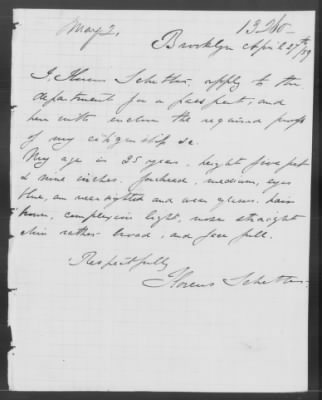 May 2,
13260
Brooklyn April 27th/89
I, Florens Schetter, apply to the
department for a passport; and
here with enclose the required proofs
of my citizenship &c.
My age is 25 years, height five feet
& nine inches. forehead, medium, eyes
blue, am near sighted and wear glasses. hair
brown, complexion light, nose straight
chin rather broad, and face full.
Respectfully
Florens Schetter